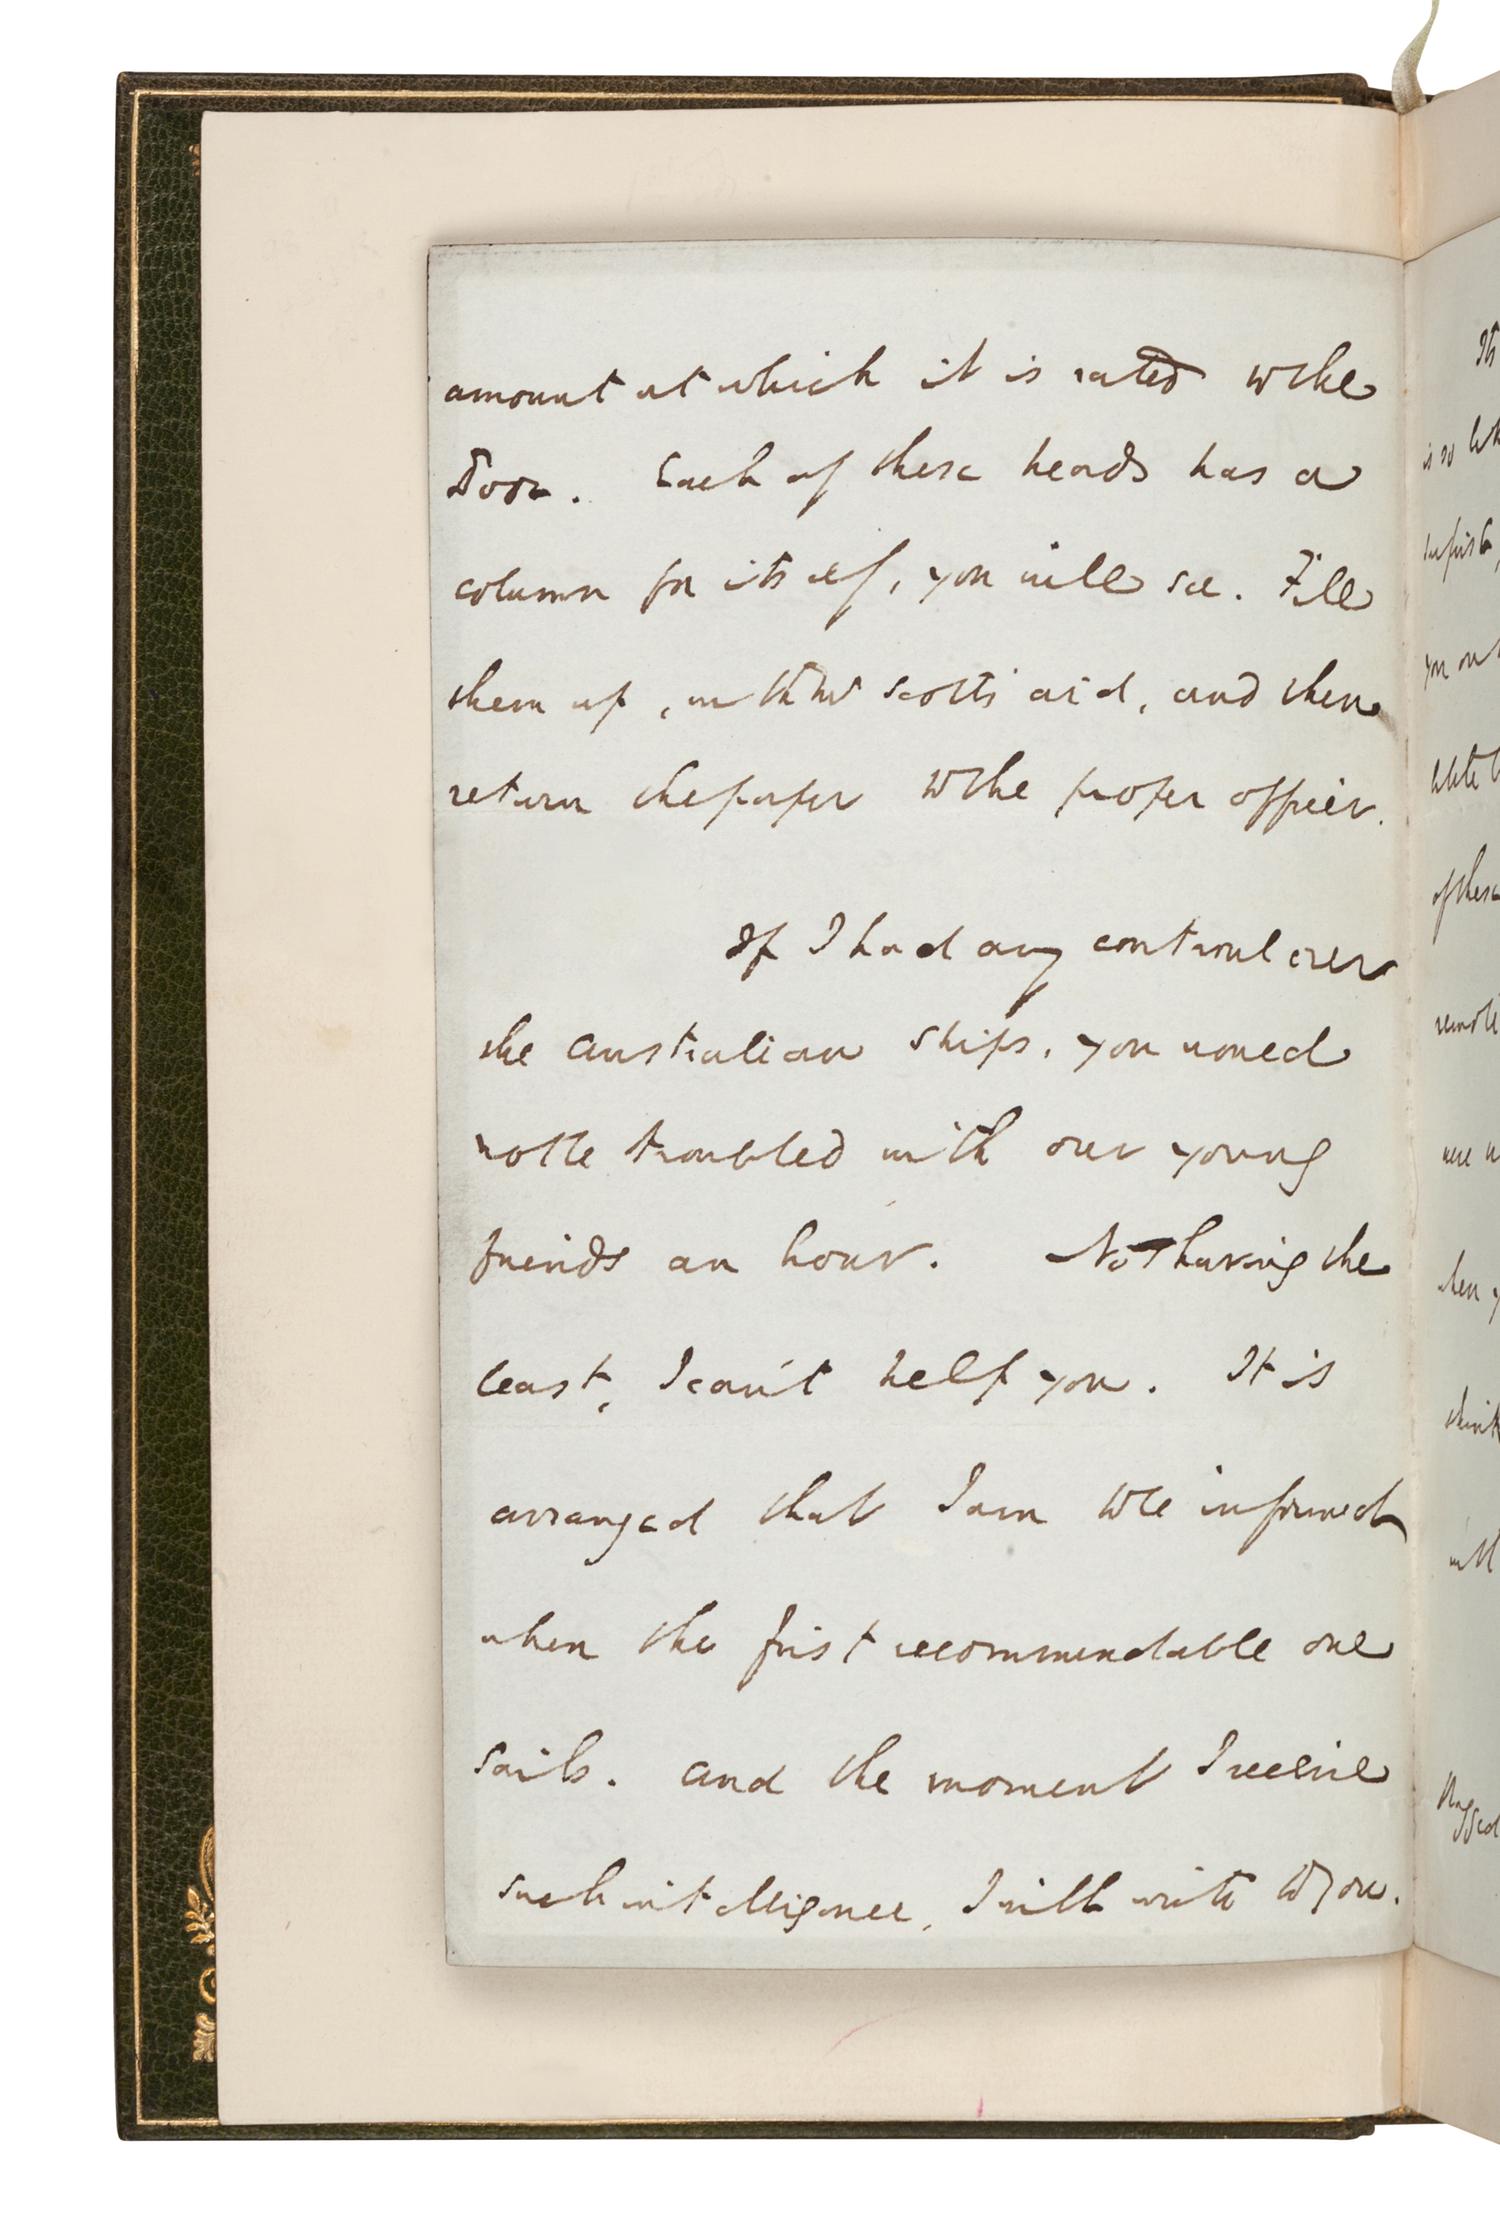 amount at which it is rated to the
Poor. Each of these heads has a
column for itself, you will see. Fill
them up, with Mr Scott's aid, and then
return the paper to the proper officer.
If I had any controul over
the Australian ships, you would
not be troubled with our young
friends an hour. Not having the
least, I can't help you. It is
arranged that I am to be informed
when the first recommendable one
sails. And the moment I receive
such intelligence, I will write to you.
Its
is so
you
of these
were
when
think
Ragged